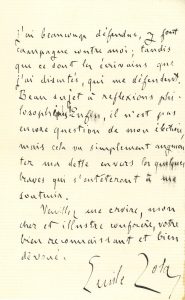 j'ai beaucoup défendue, y font
campagne contre moi; tandis
que ce sont les écrivains que
j'ai discutés, qui me défendent.
Beau sujet à réflexions phi-
losophiques. Enfin, il n'est pas
encore question de mon élection,
mais cela va simplement augmen-
ter ma dette envers les quelques
braves qui s'entêteront à me
soutenir.
Veuillez me croire, mon
cher et illustre confrère, votre
bien reconnaissant et bien
dévoué.
Emile Zola